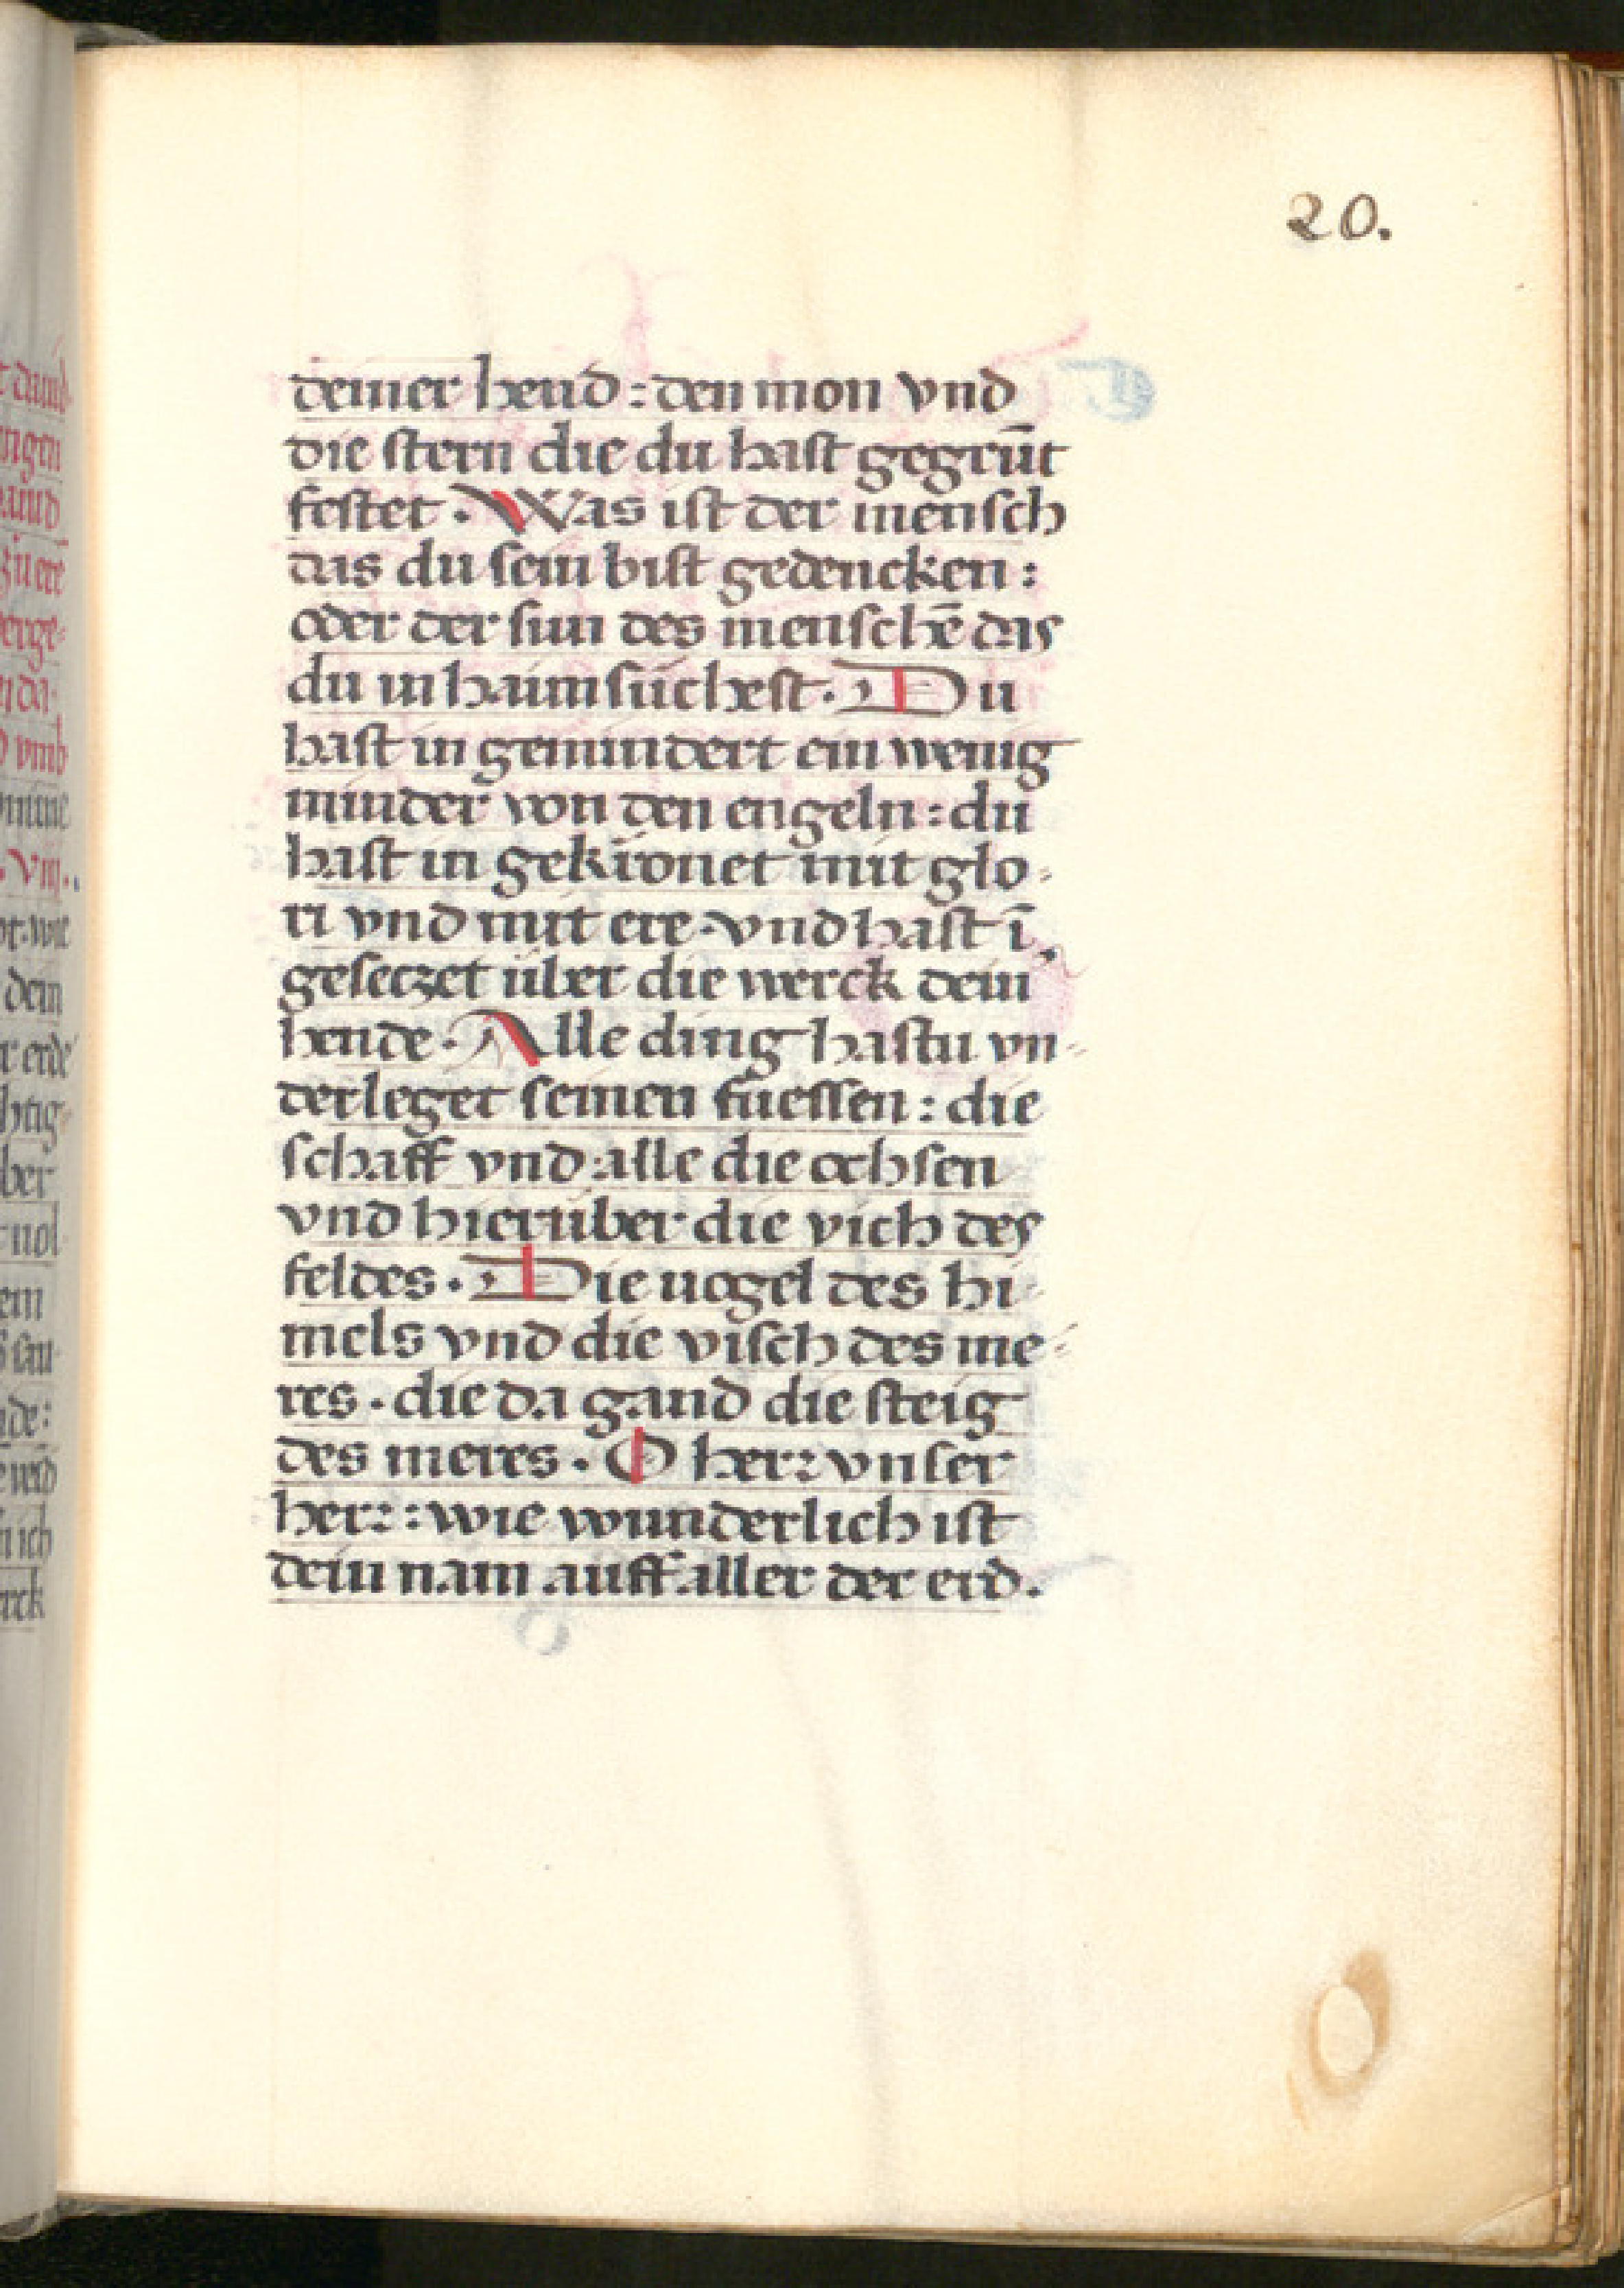 20.
deiner hend : den mon vnd
die stern die du hast gegrūt
festet · Was ist der mensch
das du sein bist gedencken :
oder der sun des menschē das
du in haimsüchest · Du
hast in gemindert ein wenig
minder von den engeln : du
hast in gekrönet mit glo-
ri vnd mit ere · vnd hast ī
gesetzet über die werck dein
hende · Alle ding hastu vn-
derleget seinen füessen : die
schaff vnd alle die ochsen
vnd hierüber die vich des
feldes · Die uogel des hi-
mels vnd die visch des me-
res · die da gand die steig
des meres · O herr vnser
herr : wie wunderlich ist
dein nam auff aller der erd.